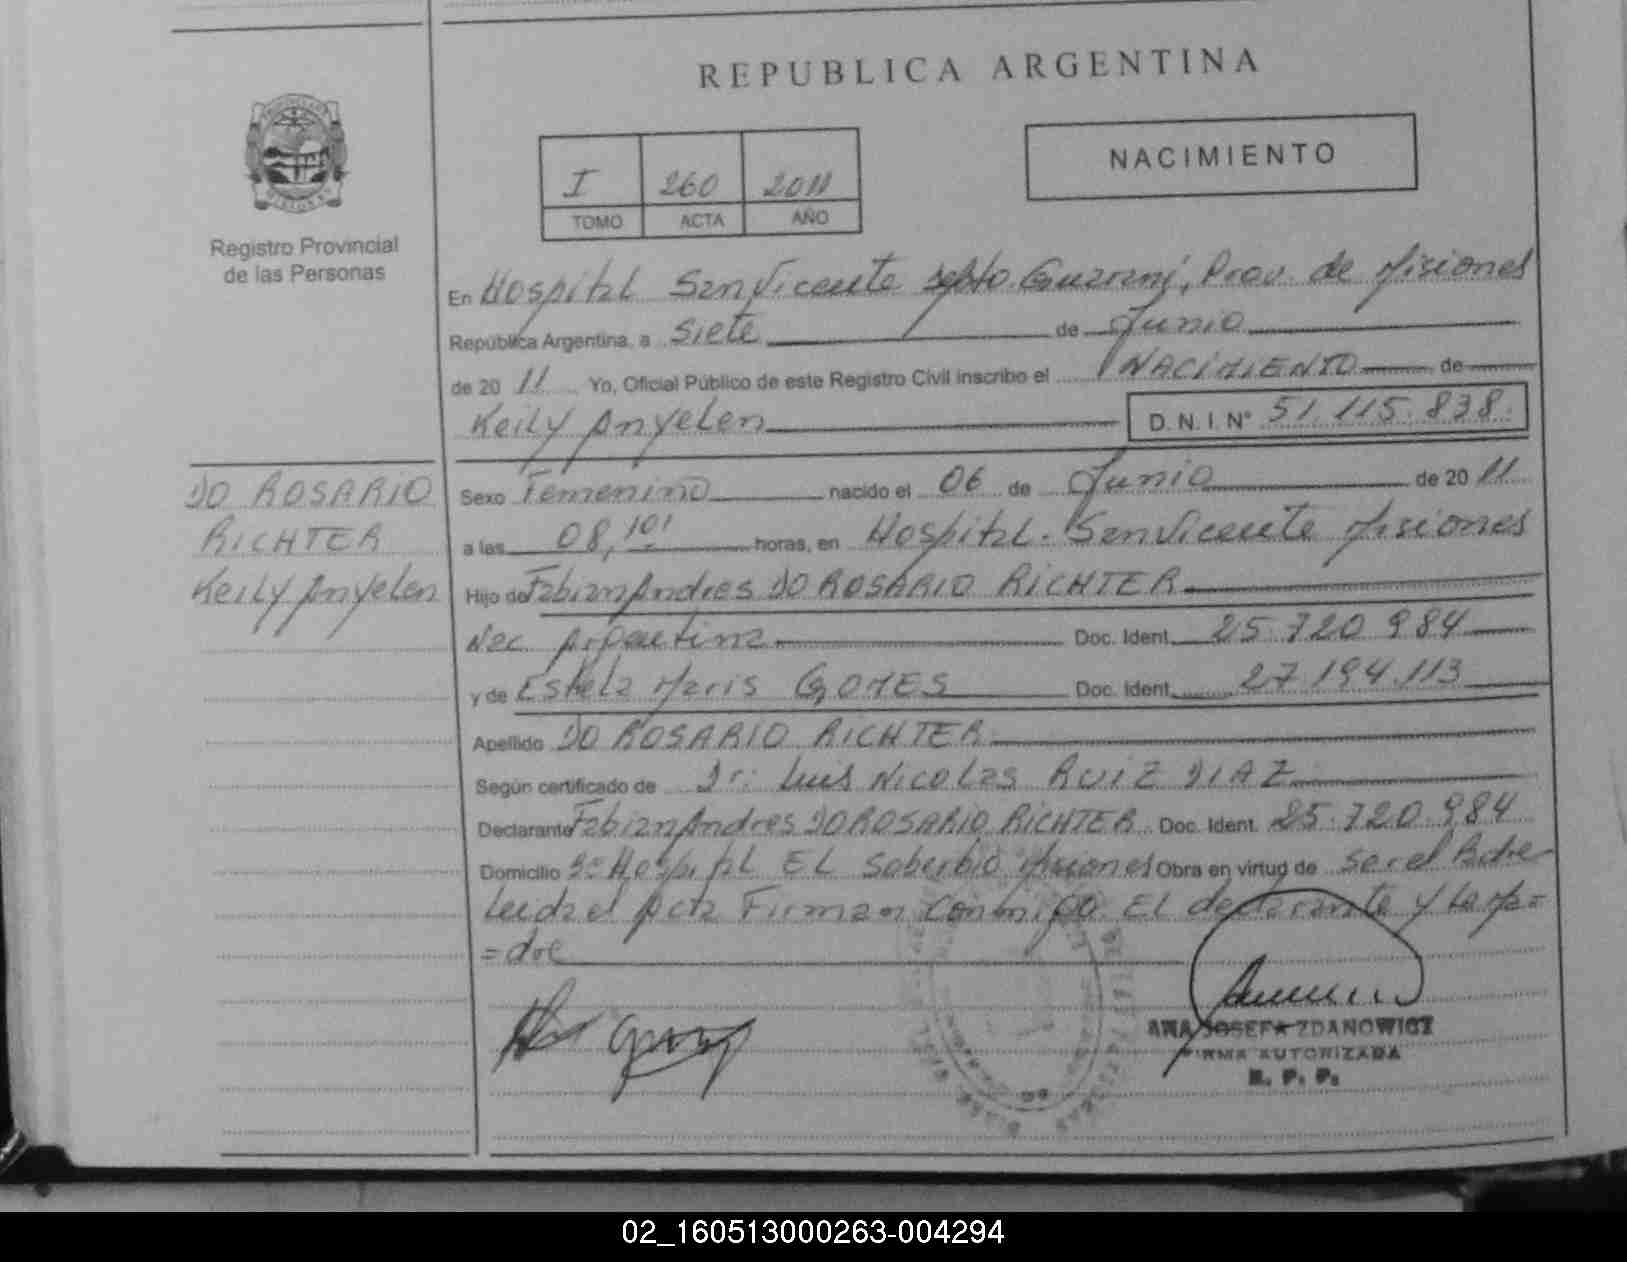 REPUBLICA ARGENTINA
Registro Provincial
de las Personas
I 260 2011
TOMO ACTA AÑO
NACIMIENTO
En Hospital San Vicente Dpto. Guarani, Prov. de Misiones
República Argentina, a Siete de Junio
de 20 11 Yo, Oficial Público de este Registro Civil inscribo el NACIMIENTO de
Keily Anyelen D.N.I. N° 51.115.838
DO ROSARIO
RICHTER
Keily Anyelen
Sexo Femenino nacido el 06 de Junio de 20 11
a las 08,10' horas, en Hospital. San Vicente Misiones
Hijo de Fabian Andres DO ROSARIO RICHTER
Nac. Argentina Doc. Ident. 25.720.984
y de Estela Maris GOMES Doc. Ident. 27.194.113
Apellido DO ROSARIO RICHTER
Según certificado de Dr: Luis Nicolas RUIZ DIAZ
Declarante Fabian Andres DO ROSARIO RICHTER Doc. Ident. 25.720.984
Domicilio Bº Hospital EL Soberbio Misiones Obra en virtud de ser el Padre
Leida el Acta Firman conmigo EL declarante y La Ma=
=dre
ANA JOSEFA ZDANOWICZ
FIRMA AUTORIZADA
R. P. P.
02_160513000263-004294